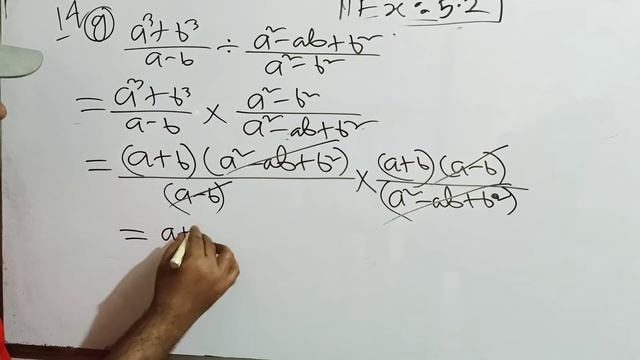 Ex = 5.2
14 (g) (a³+b³)/(a-b) ÷ (a²-ab+b²)/(a²-b²)
= (a³+b³)/(a-b) × (a²-b²)/(a²-ab+b²)
= (a+b)(a²-ab+b²)/(a-b) × (a+b)(a-b)/(a²-ab+b²)
= a+